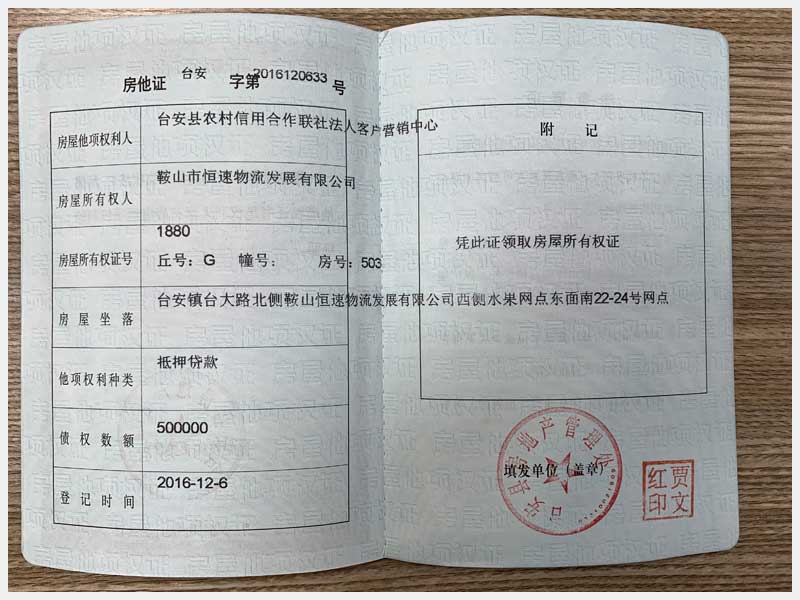 房他证 台安 字第2016120633 号
房屋他项权利人 台安县农村信用合作联社法人客户营销中心
房屋所有权人 鞍山市恒速物流发展有限公司
房屋所有权证号 1880
丘号：G 幢号： 房号：503
房屋坐落 台安镇台大路北侧鞍山恒速物流发展有限公司西侧水果网点东面南22-24号网点
他项权利种类 抵押贷款
债权数额 500000
登记时间 2016-12-6
附记
凭此证领取房屋所有权证
台安县房地产管理处
填发单位（盖章）
贾文红印